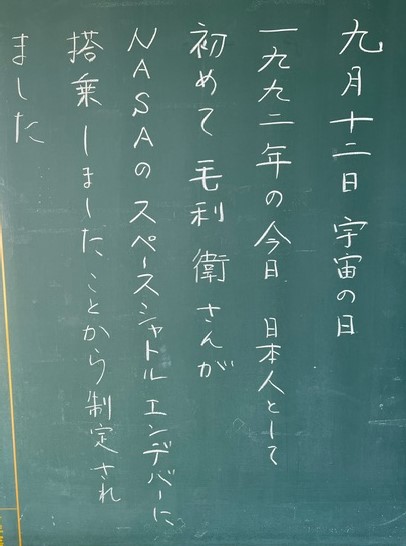 九月十二日 宇宙の日
一九九二年の今日 日本人として
初めて 毛利 衛さんが
NASAのスペースシャトルエンデバーに
搭乗しましたことから制定され
ました